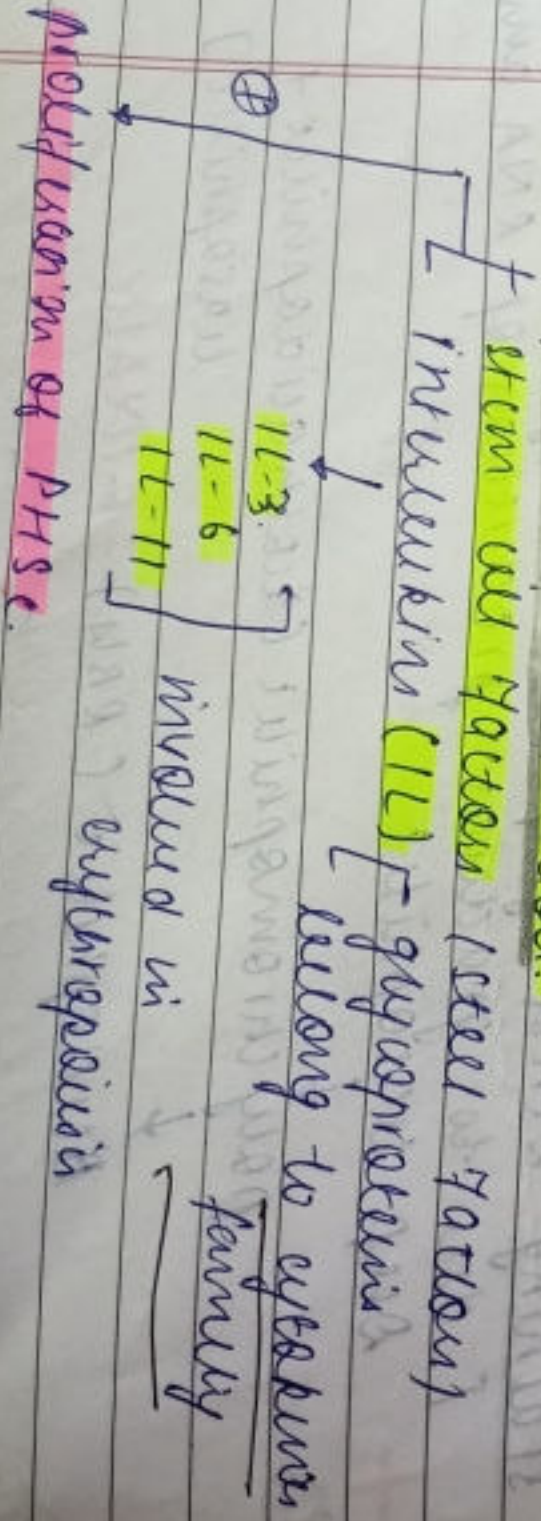 stem cell factors (steel factors)
interleukins (IL) [ glycoproteins
belong to cytokines
family
IL-3
IL-6
IL-11
involved in
erythropoiesis
⊕
proliferation of PHSC.